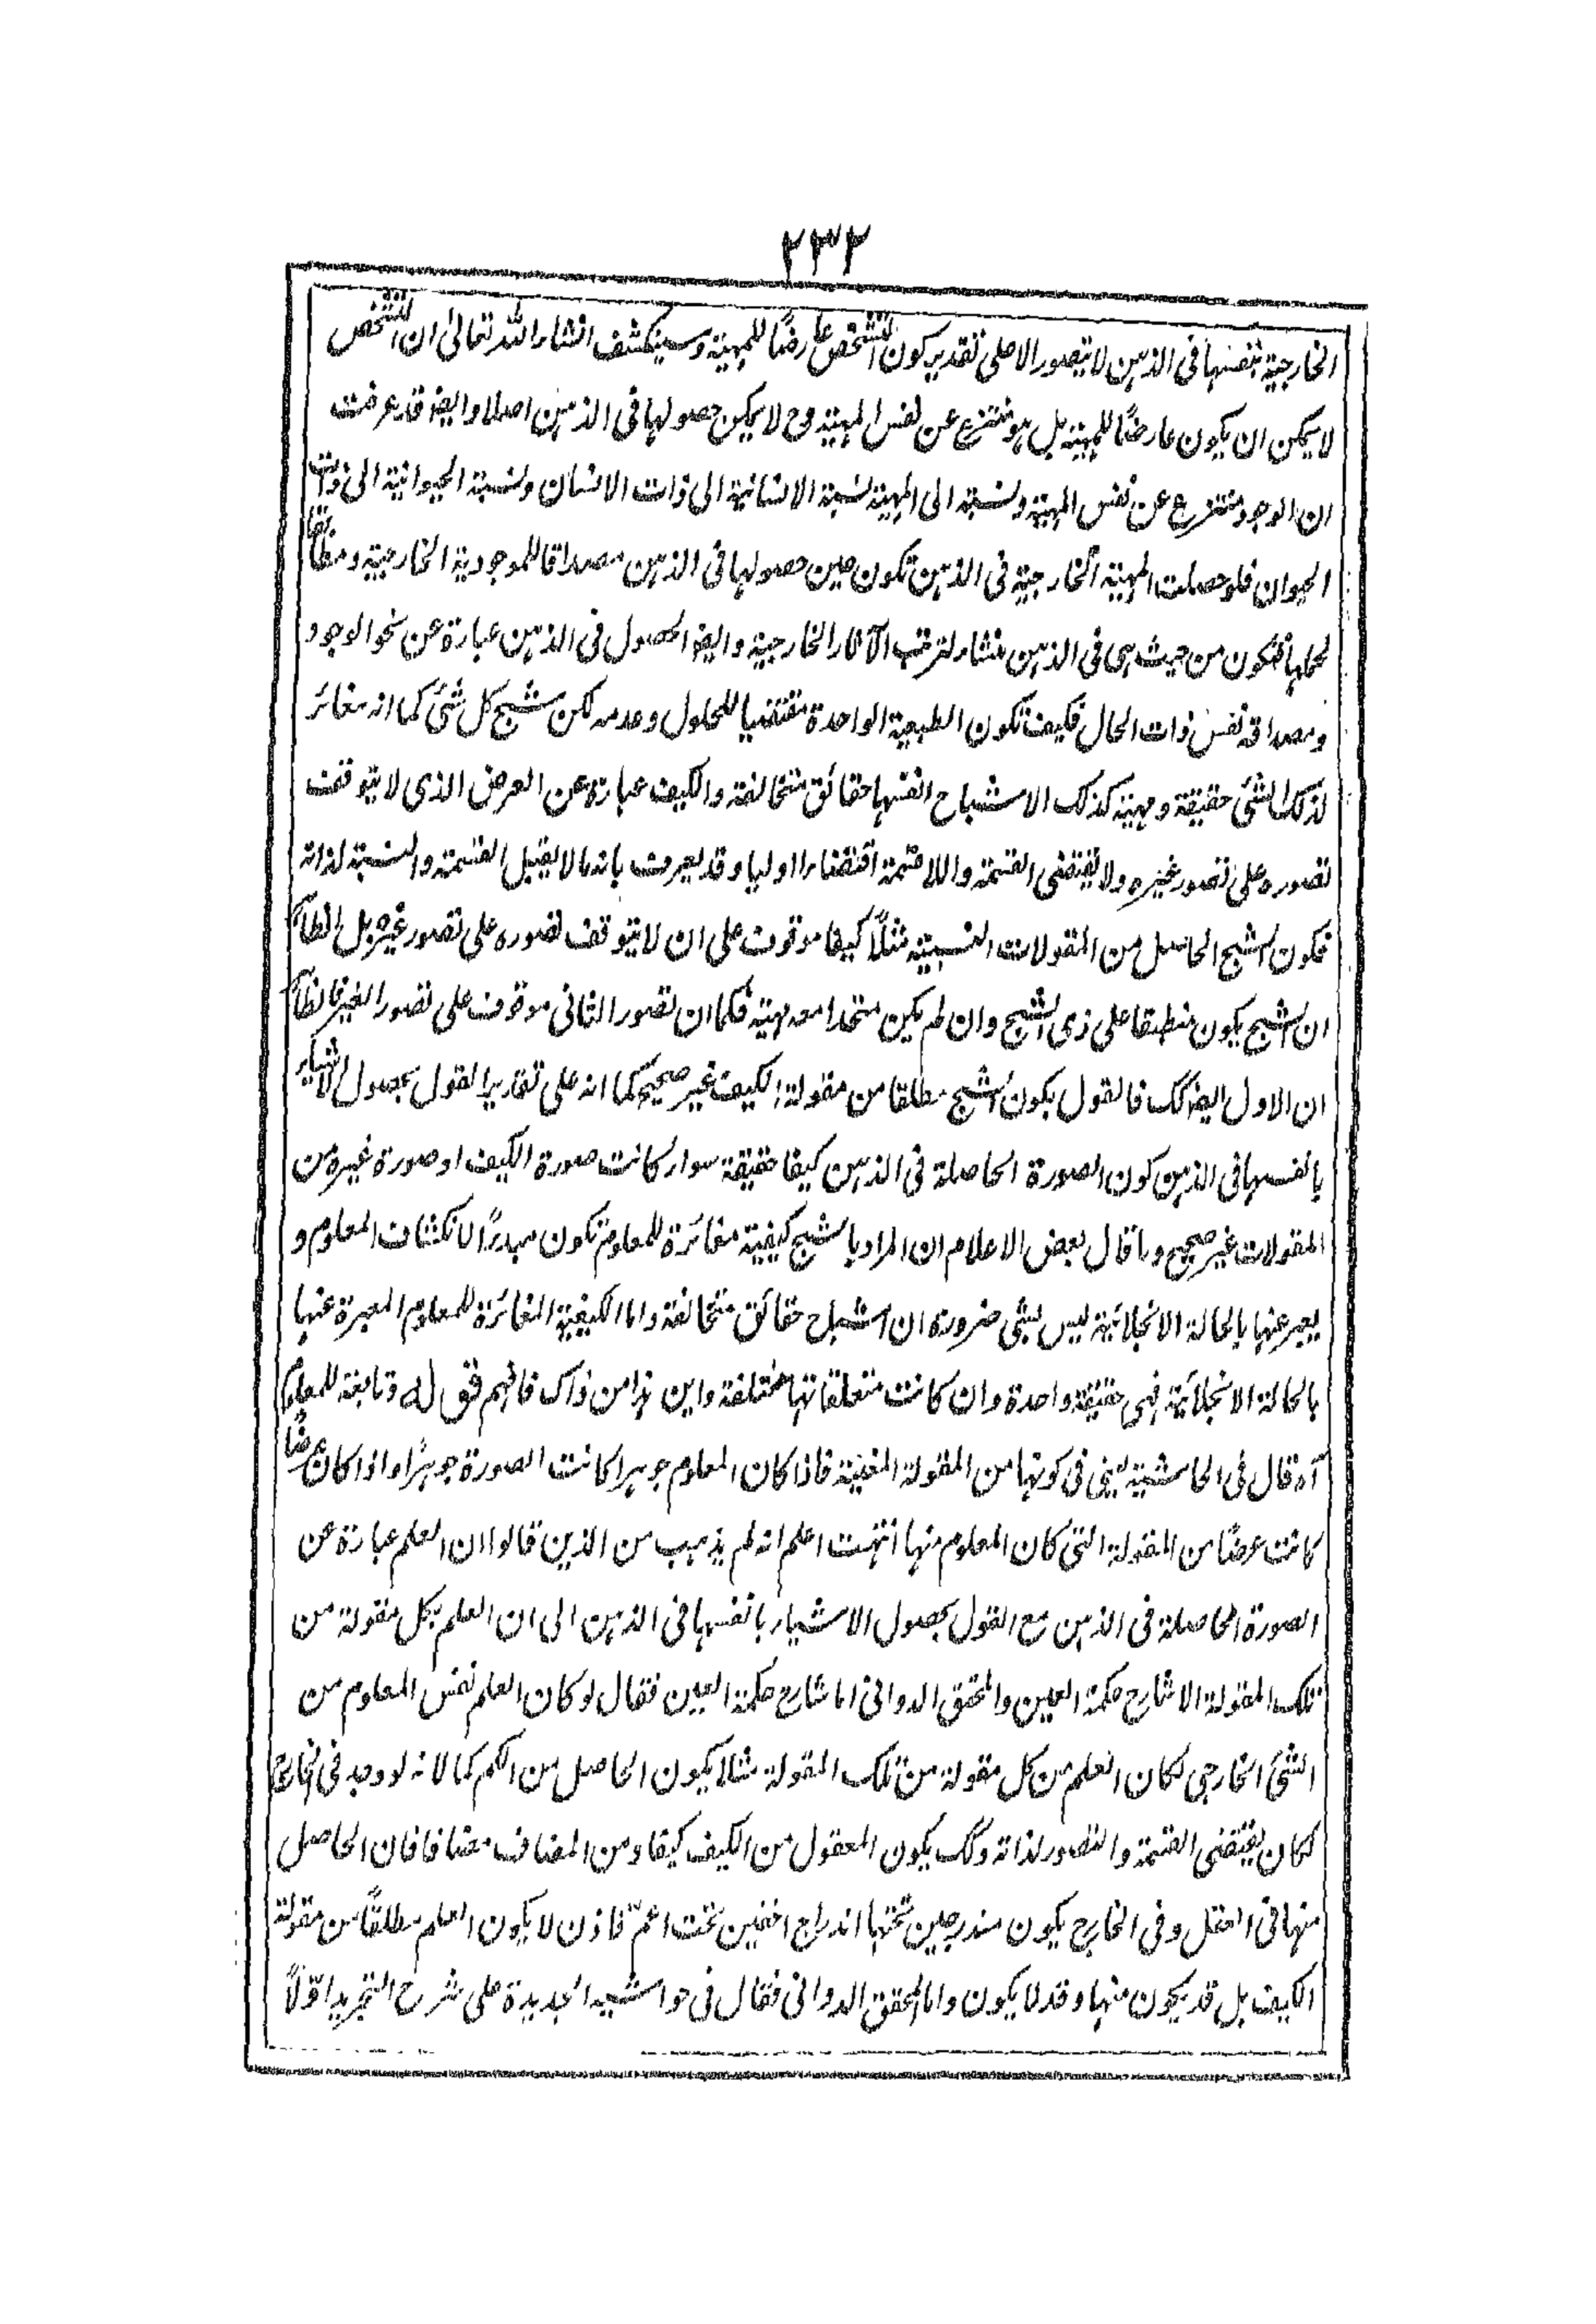 ٢٣٢
الخارجية بنفسها فى الذهن لا يتصور الا على تقدير كون التشخص عارضًا للمهية وسينكشف انشاء الله تعالى ان التشخص
لا يمكن ان يكون عارضًا للمهية بل هو منتزع عن نفس المهية وح لا يمكن حصولها فى الذهن اصلا وايضا قد عرفت
ان الوجود منتزع عن نفس المهية ونسبته الى المهية نسبة الانسانية الى ذات الانسان ونسبة الحيوانية الى ذات
الحيوان فلو حصلت المهية الخارجية فى الذهن تكون حين حصولها فى الذهن مصداقا للموجودية الخارجية ومطابقا
لحملها فتكون من حيث هى فى الذهن منشاء لترتب الآثار الخارجية وايضا الحصول فى الذهن عبارة عن نحو الوجود
ومصداقه نفس ذات الحال فكيف تكون الطبيعة الواحدة مقتضيا للحلول وعدمه لكن شبح كل شئ كما انه مغائر
لذلك الشئ حقيقة ومهية كذلك الاشباح انفسها حقائق متخالفة والكيف عبارة عن العرض الذى لا يتوقف
تصوره على تصور غيره ولا يقتضى القسمة واللا قسمة اقتضاء اوليا وقد يعرف بانه ما لا يقبل القسمة والنسبة لذاته
فكون الشبح الحاصل من المقولات النسبية مثلًا كيفا موقوف على ان لا يتوقف تصوره على تصور غيره بل الظاهر
ان الشبح يكون منطبقا على ذى الشبح وان لم يكن متحدا معه مهية فكما ان تصور الثانى موقوف على تصور الغير فالظاهر
ان الاول ايضا كك فالقول بكون الشبح مطلقا من مقولة الكيف غير صحيح كما انه على تقدير القول بحصول الاشياء
بانفسها فى الذهن كون الصورة الحاصلة فى الذهن كيفا حقيقة سواء كانت صورة الكيف او صورة غيره من
المقولات غير صحيح وما قال بعض الاعلام ان المراد بالشبح كيفية مغائرة للمعلوم تكون مبدءًا لانكشاف المعلوم و
يعبر عنها بالحالة الانجلائية ليس بشئ ضرورة ان الاشباح حقائق متخالفة واما الكيفية المغائرة للمعلوم المعبرة عنها
بالحالة الانجلائية فهى حقيقة واحدة وان كانت متعلقاتها مختلفة واين هذا من ذاك فافهم قوله وتابعة للمعلوم
آه قال فى الحاشية يعنى فى كونها من المقولة المعينة فاذا كان المعلوم جوهرا كانت الصورة جوهرًا واذا كان عرضًا
كانت عرضًا من المقولة التى كان المعلوم منها انتهت اعلم انه لم يذهب من الذين قالوا ان العلم عبارة عن
الصورة الحاصلة فى الذهن مع القول بحصول الاشياء بانفسها فى الذهن الى ان العلم بكل مقولة من
تلك المقولة الا شارح حكمة العين والمحقق الدوانى اما شارح حكمة العين فقال لو كان العلم نفس المعلوم من
الشئ الخارجى لكان العلم من كل مقولة من تلك المقولة مثلا يكون الحاصل من الكم كما لانه لو وجد فى الخارج
لكان يقتضى القسمة والتصور لذاته وكك يكون المعقول من الكيف كيفا ومن المضاف مضافا فان الحاصل
منها فى العقل وفى الخارج يكون مندرجين تحتها اندراج اخصين تحت اعمّ فاذن لا يكون العلم مطلقًا من مقولة
الكيف بل قد يكون منها وقد لا يكون واما المحقق الدوانى فقال فى حواشيه الجديدة على شرح التجريد اوّلًا